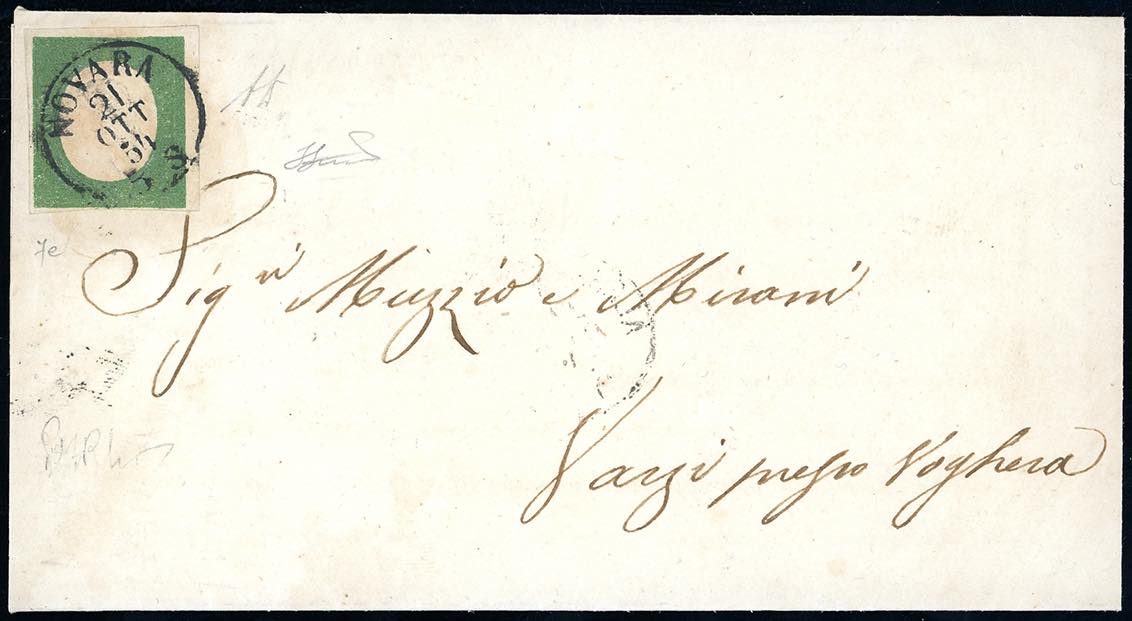 NOVARA
21
OTT
54
7e
Sig.ri Muzzio e Mirani
Varzi presso Voghera